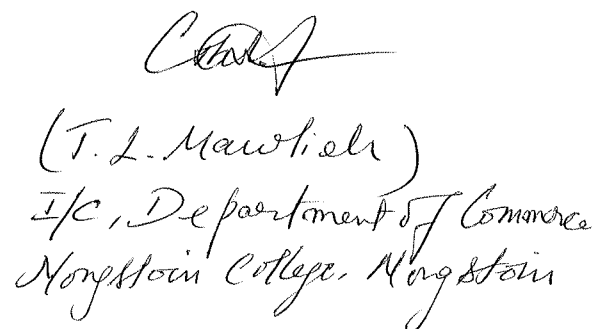 (T. L. Mawlieh)
I/C, Department of Commerce
Nongstoin College, Nongstoin